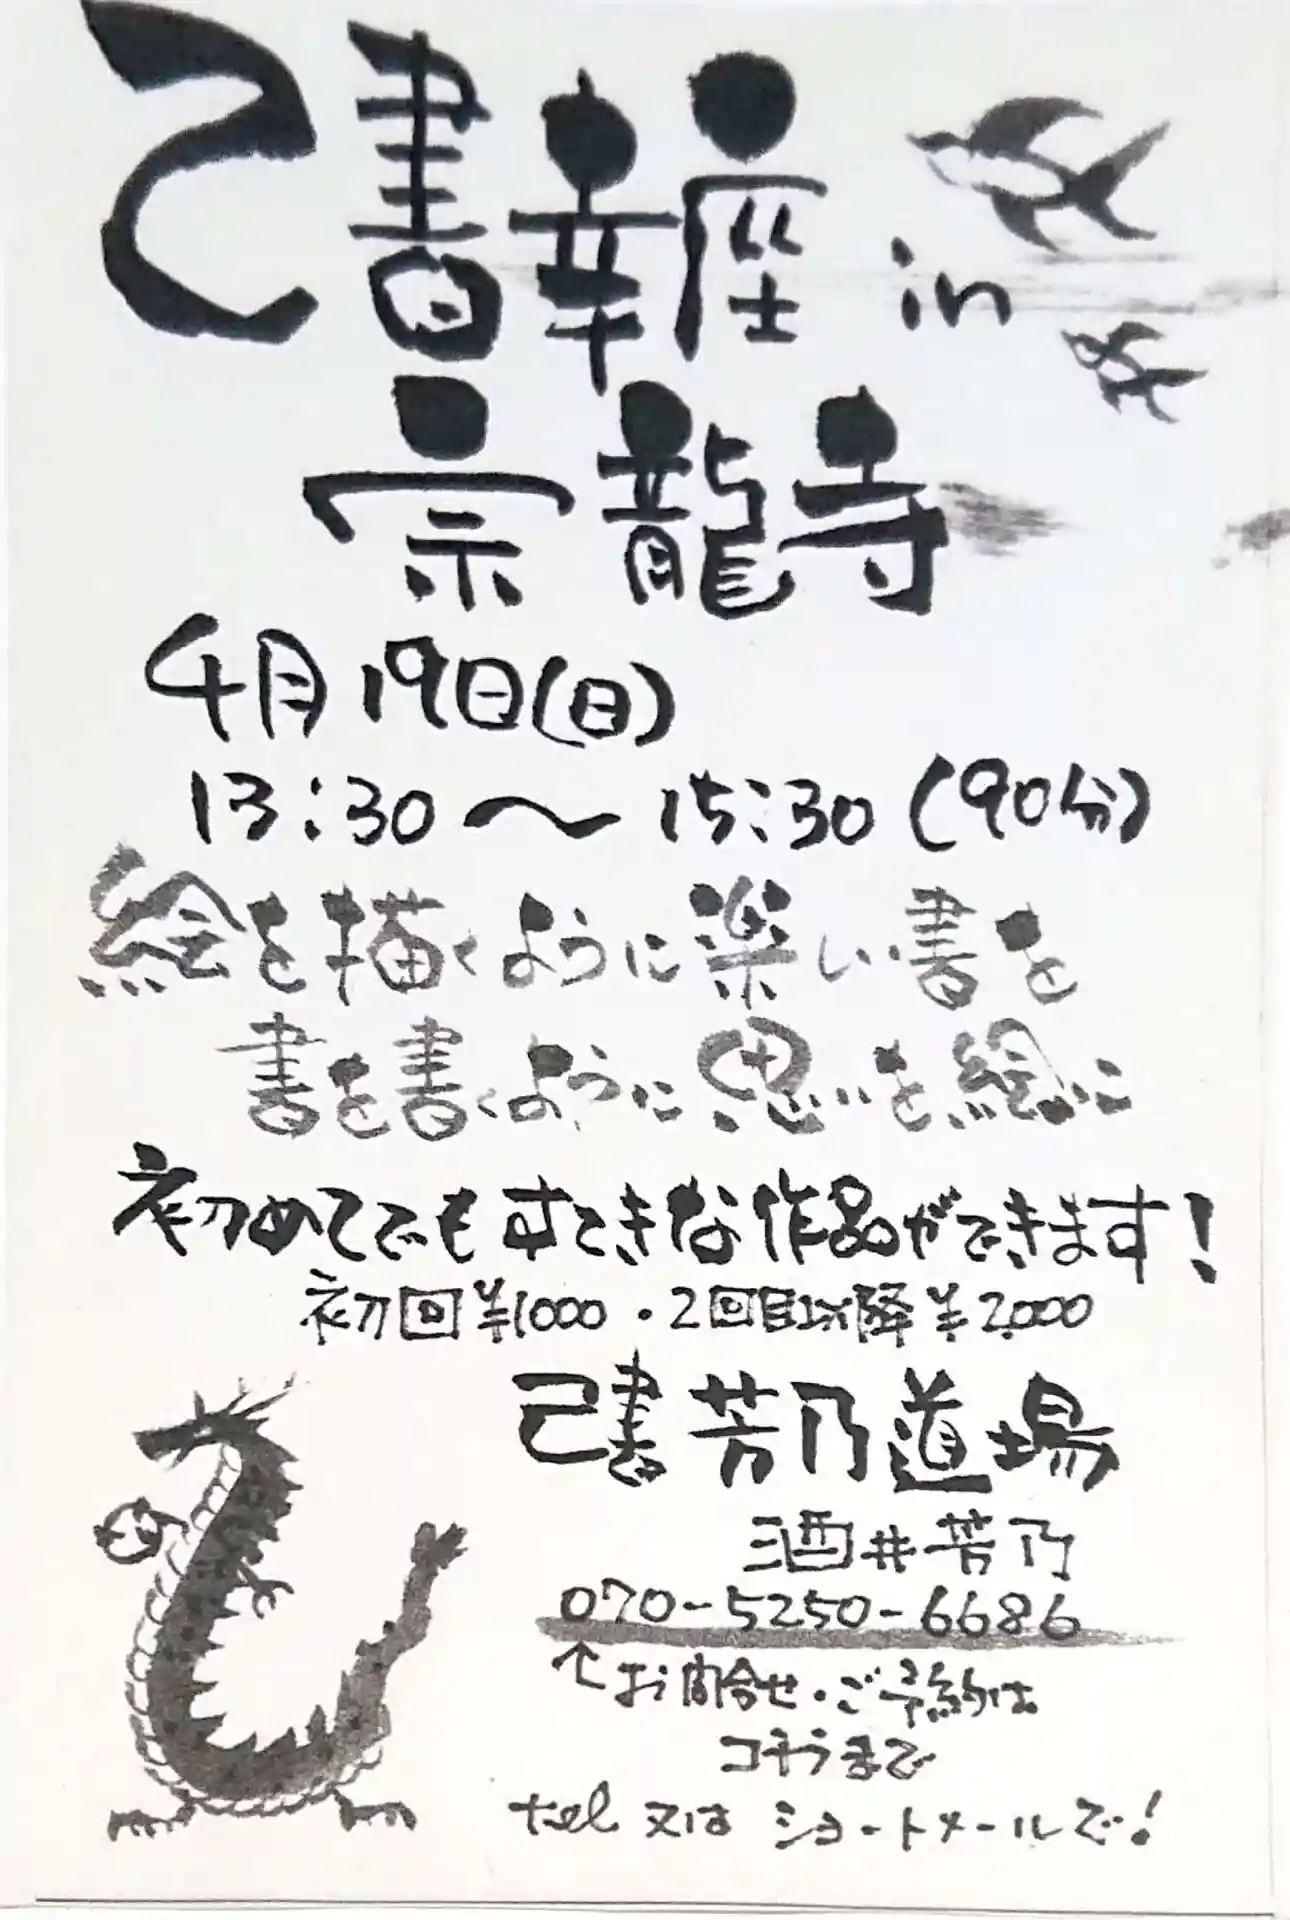 己書幸座 in
宗龍寺
4月19日(日)
13:30〜15:30(90分)
絵を描くように楽しい書を
書を書くように思いを絵に
初めてでもすてきな作品ができます!
初回¥1000・2回目以降¥2,000
己書芳乃道場
酒井芳乃
070-5250-6686
↑お問合せ・ご予約は
コチラまで
tel 又は ショートメールで!